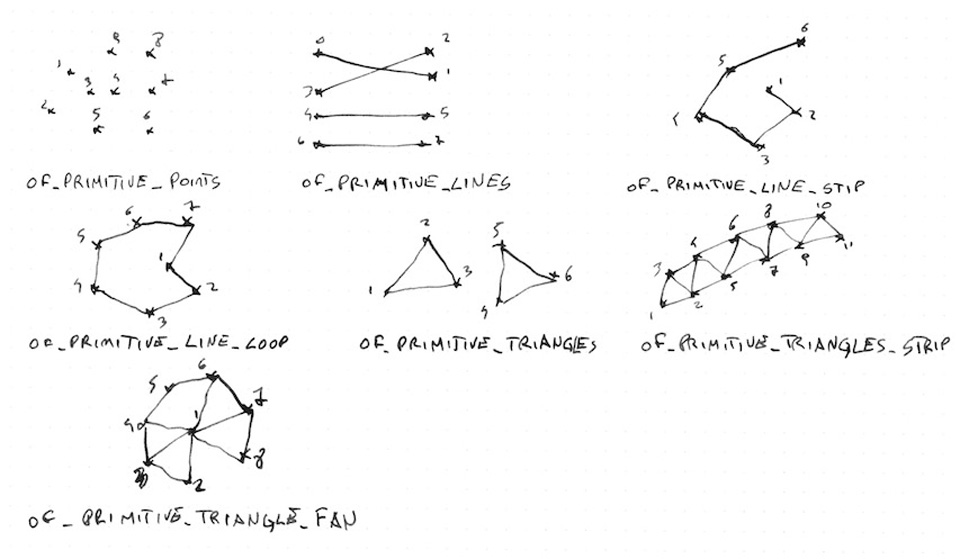 9 8
1 3 4 7
2 5 6
OF_PRIMITIVE_POINTS
0 2
3 1
4 5
6 7
OF_PRIMITIVE_LINES
6
5 1
4 2
3
OF_PRIMITIVE_LINE_STIP
6 7
5 1
4 2
3
OF_PRIMITIVE_LINE_LOOP
2 5
1 3 6
4
OF_PRIMITIVE_TRIANGLES
4 6 8 10
3 11
1 2 5 7 9
OF_PRIMITIVE_TRIANGLES_STRIP
5 6
4 1 7
3 2 8
OF_PRIMITIVE_TRIANGLE_FAN